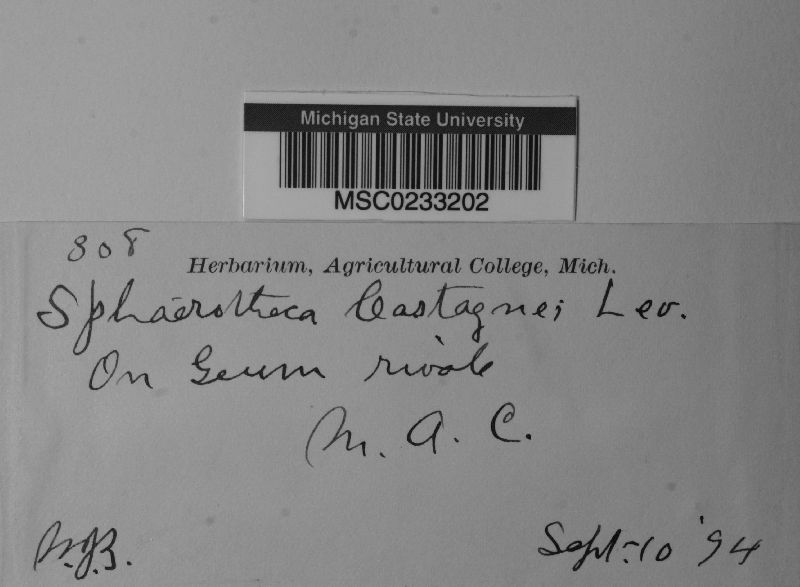 Michigan State University
MSC0233202
808
Herbarium, Agricultural College, Mich.
Sphaerotheca Castagnei Lev.
On Geum rivale
M. A. C.
Sept. 10 '94